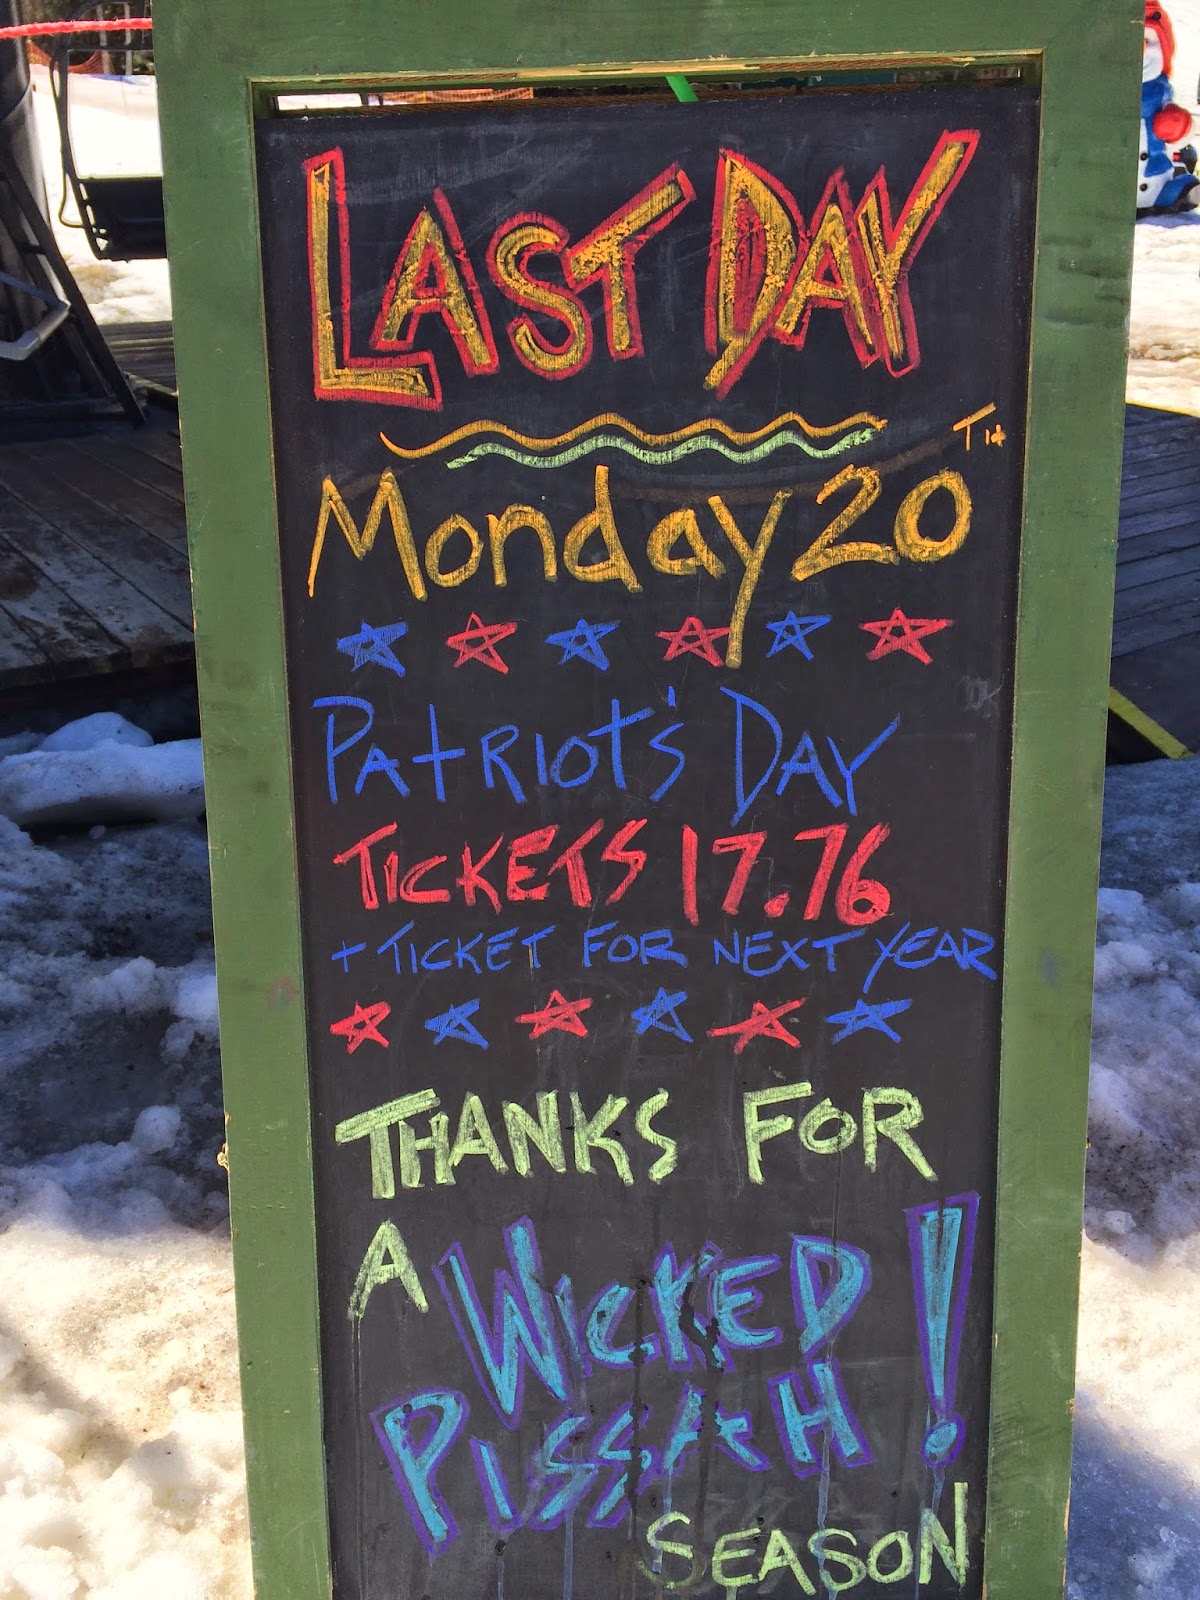 LAST DAY
Monday 20TH
PATRIOT'S DAY
TICKETS 17.76
+ TICKET FOR NEXT YEAR
THANKS FOR
A WICKED
PISSAH!
SEASON